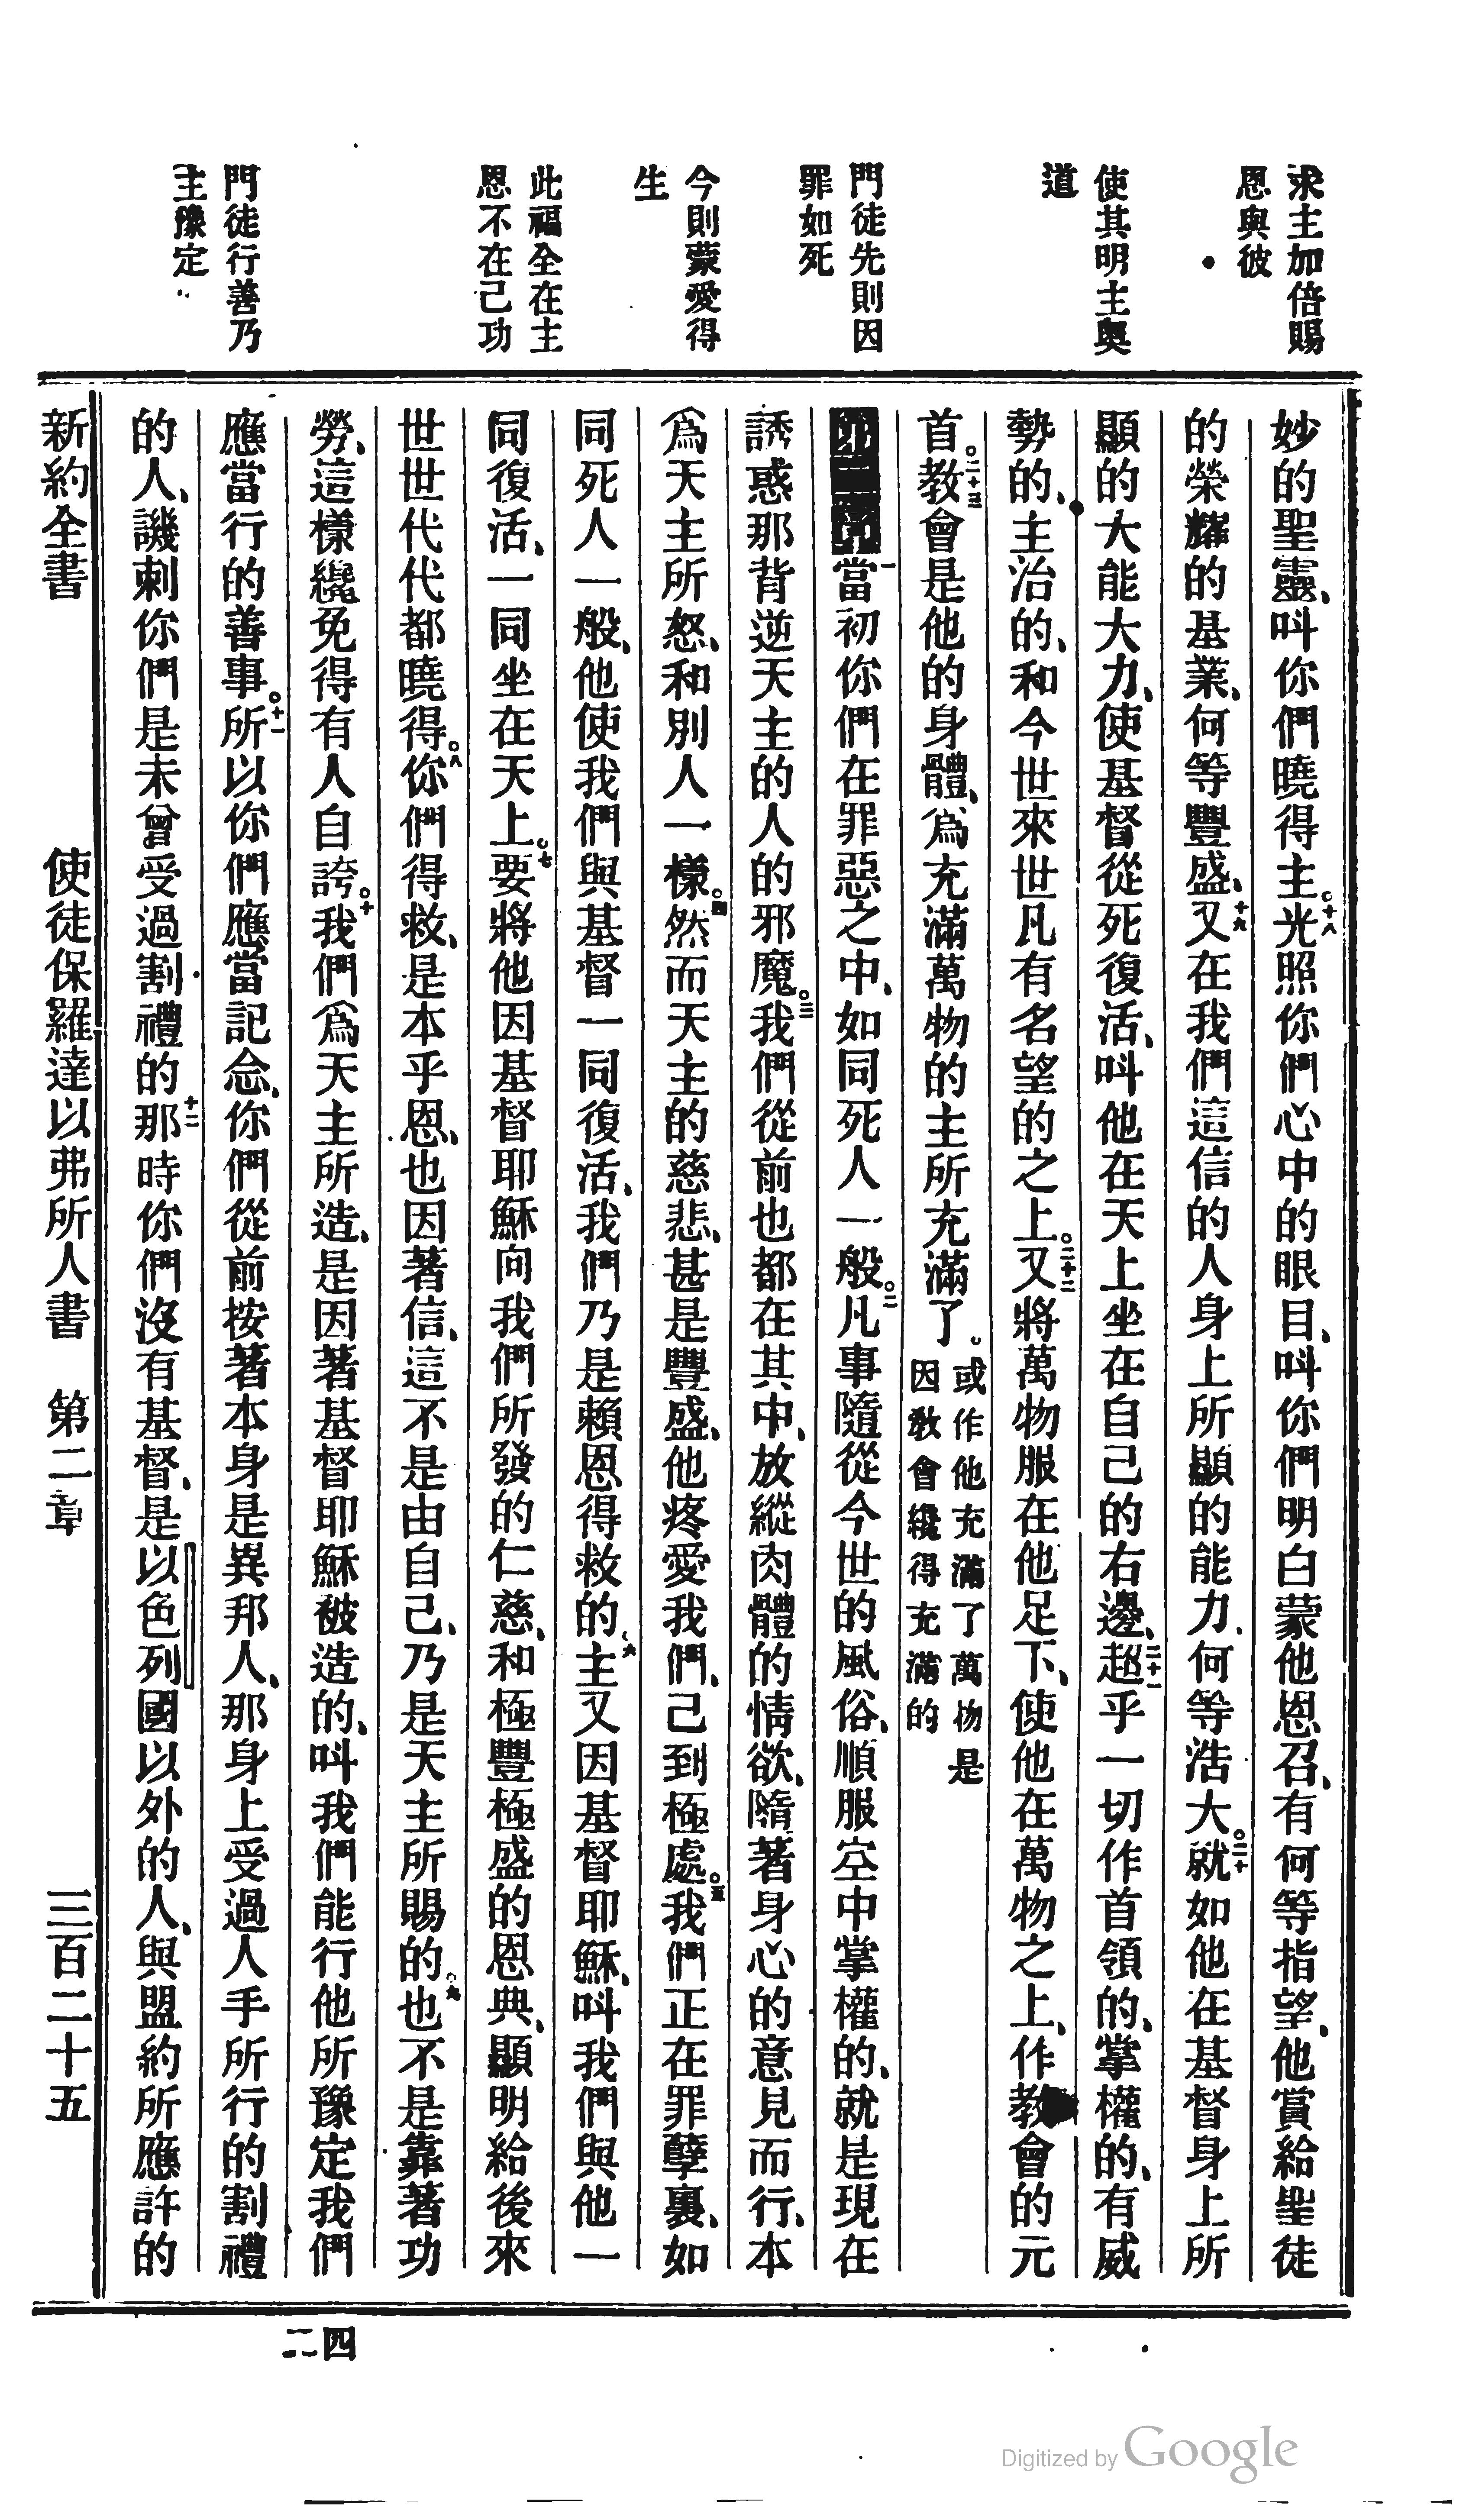 求主加倍賜
恩與彼
使其明主奧
道
門徒先則因
罪如死
今則蒙愛得
生
此福全在主
恩不在己功
門徒行善乃
主豫定
妙的聖靈、叫你們曉得主。十八光照你們心中的眼目、叫你們明白蒙他恩召、有何等指望、他賞給聖徒
的榮耀的基業、何等豐盛、十九又在我們這信的人身上所顯的能力、何等浩大。二十就如他在基督身上所
顯的大能大力、使基督從死復活、叫他在天上坐在自己的右邊、二十一超乎一切作首領的、掌權的、有威
勢的、主治的、和今世來世凡有名望的之上。二十二又將萬物服在他足下、使他在萬物之上、作教會的元
首。二十三教會是他的身體、爲充滿萬物的主所充滿了。或作他充滿了萬物是
因敎會纔得充滿的
第二章一當初你們在罪惡之中、如同死人一般。二凡事隨從今世的風俗、順服空中掌權的、就是現在
誘惑那背逆天主的人的邪魔。三我們從前也都在其中、放縱肉體的情欲、隨著身心的意見而行、本
爲天主所怒、和別人一樣。四然而天主的慈悲、甚是豐盛、他疼愛我們、己到極處。五我們正在罪孽裏、如
同死人一般、他使我們與基督一同復活、我們乃是賴恩得救的、六主又因基督耶穌、叫我們與他一
同復活、一同坐在天上。七要將他因基督耶穌向我們所發的仁慈、和極豐極盛的恩典、顯明給後來
世世代代都曉得。八你們得救、是本乎恩、也因著信、這不是由自己、乃是天主所賜的。九也不是靠著功
勞、這樣纔免得有人自誇。十我們爲天主所造、是因著基督耶穌被造的、叫我們能行他所豫定我們
應當行的善事。十一所以你們應當記念、你們從前按著本身是異邦人、那身上受過人手所行的割禮
的人、譏刺你們是未曾受過割禮的十二那時你們沒有基督、是以色列國以外的人、與盟約所應許的
新約全書　使徒保羅達以弗所人書　第二章　三百二十五
四二
Digitized by Google